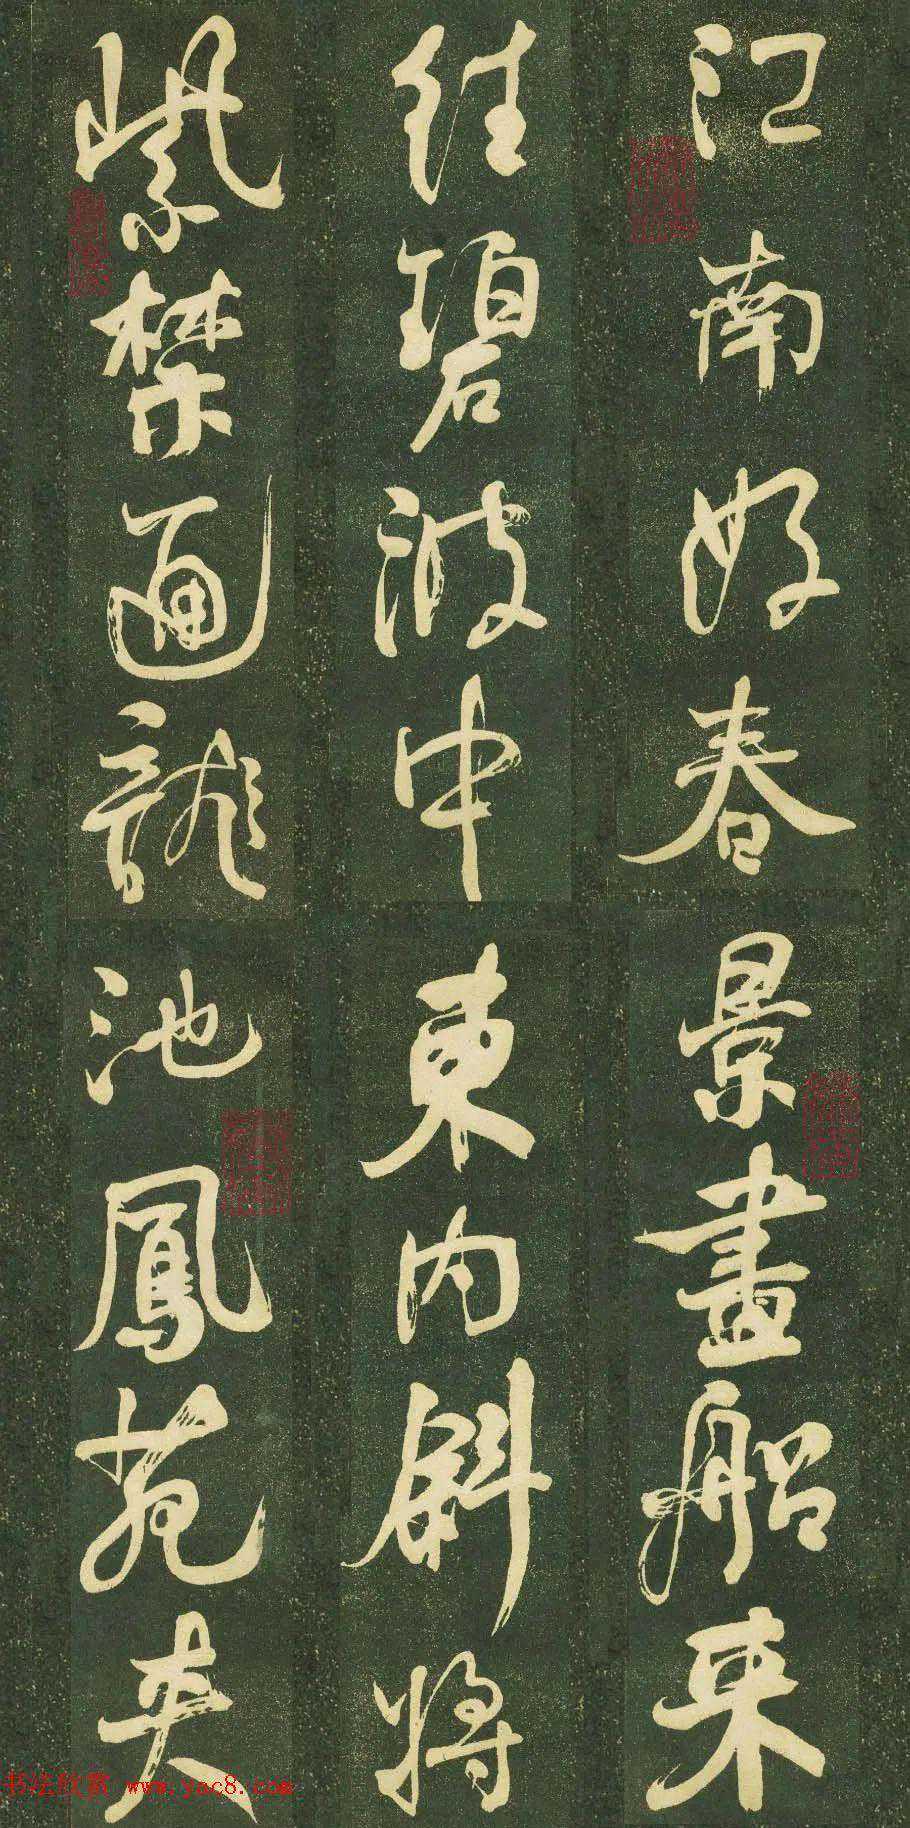 江南好春景畫船来
往碧波中東内斜將
紫禁通龍池鳳苑夹
书法欣赏 www.yac8.com